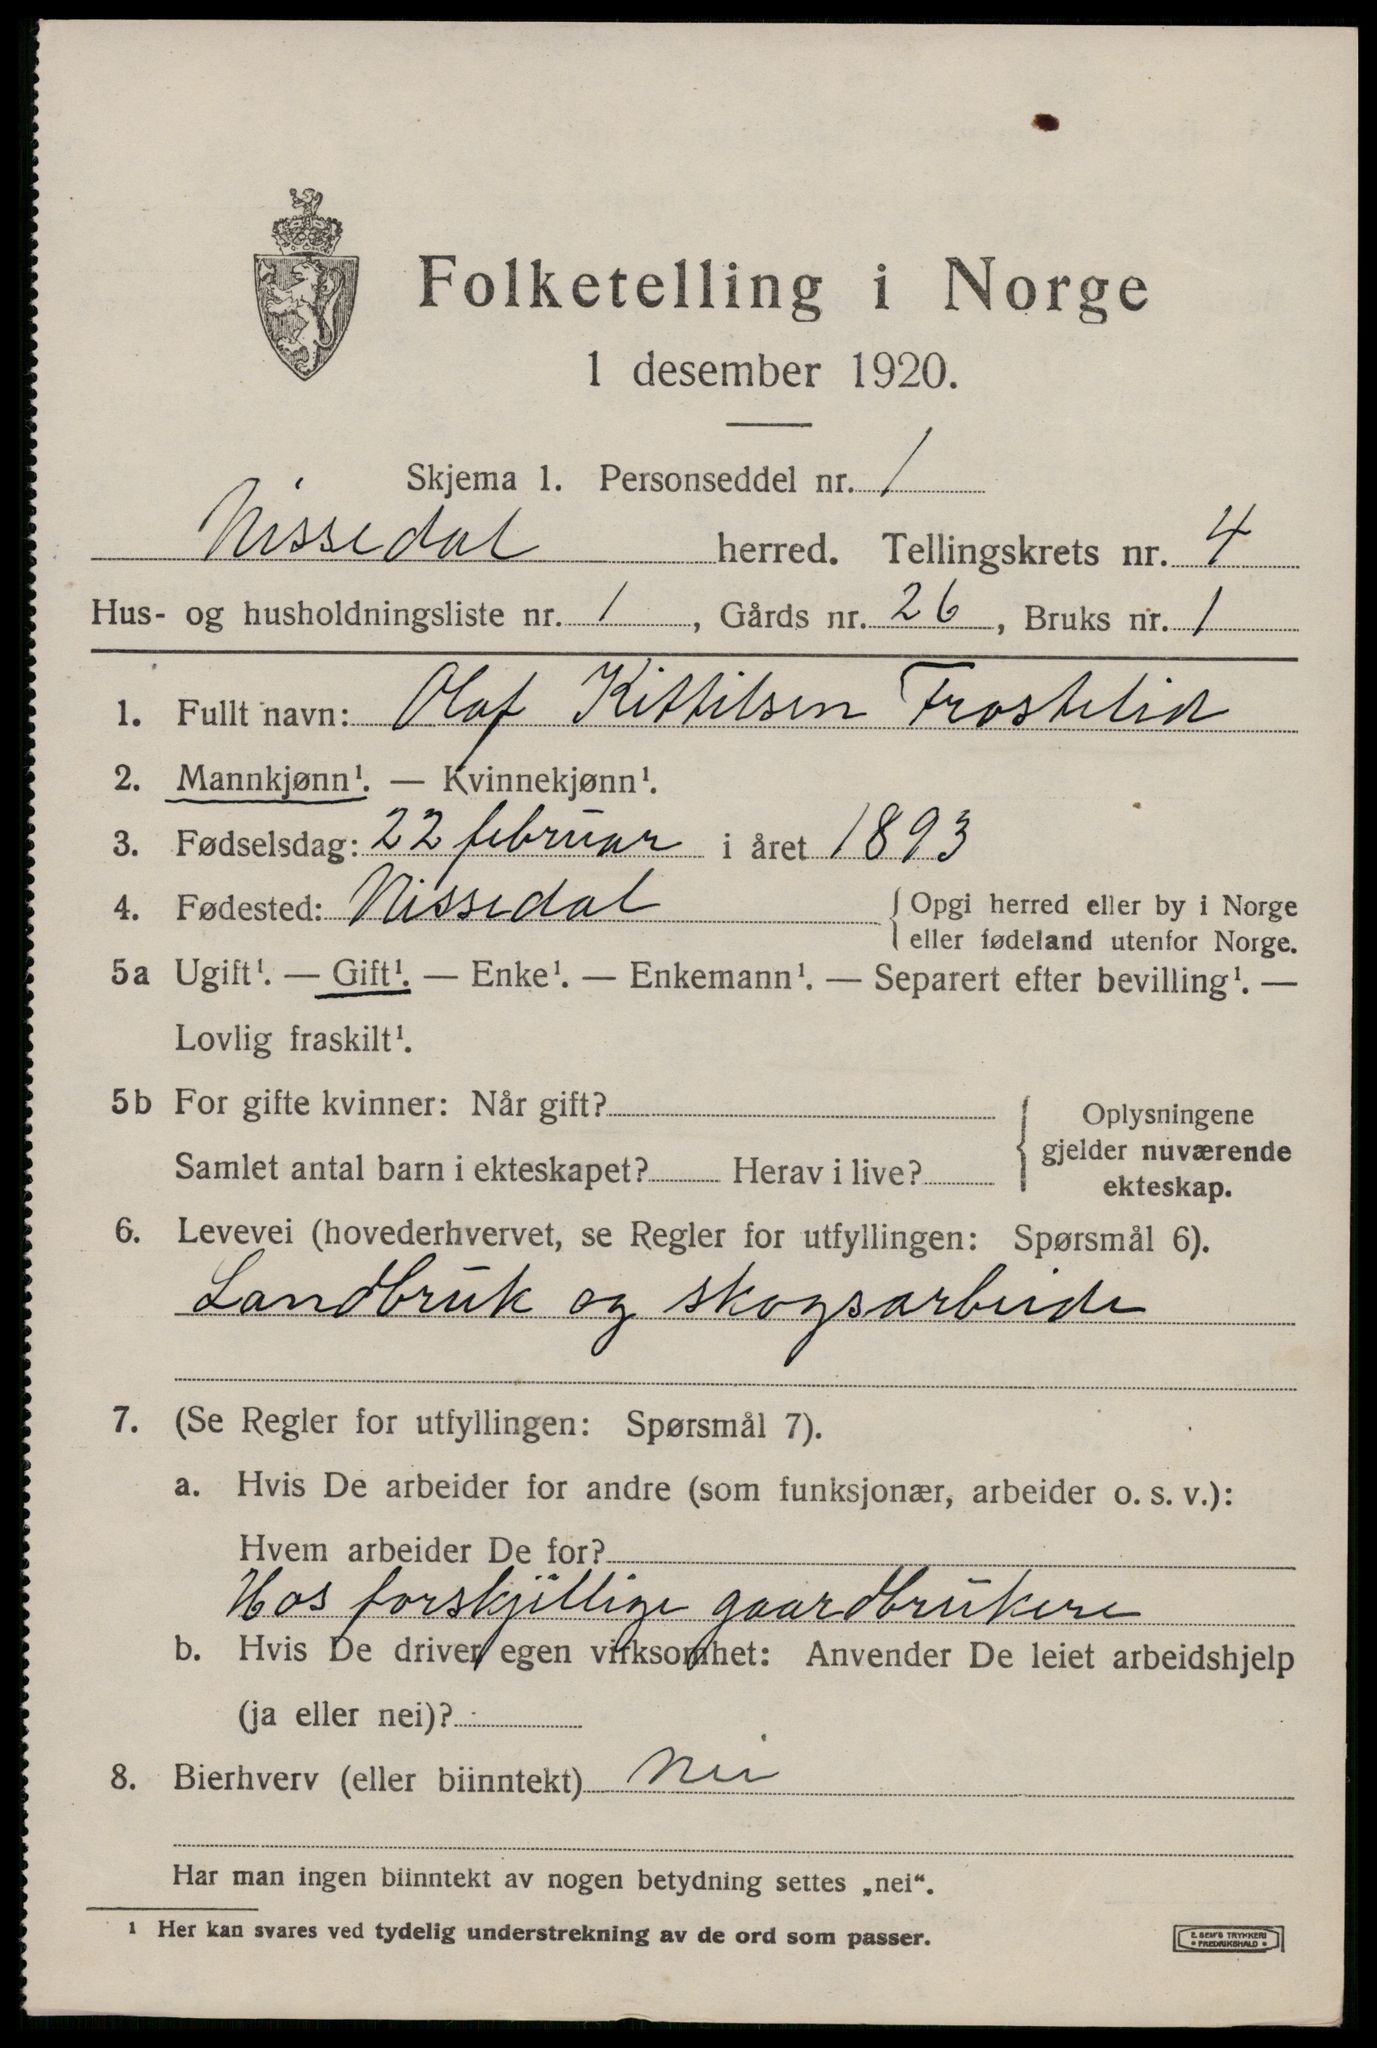 Folketelling i Norge
1 desember 1920.
Skjema 1. Personseddel nr. 1
Nissedal herred. Tellingskrets nr. 4
Hus- og husholdningsliste nr. 1, Gårds nr. 26, Bruks nr. 1
1. Fullt navn: Olaf Kittilsen Frostelid
2. Mannkjønn¹. — Kvinnekjønn¹.
3. Fødselsdag: 22 februar i året 1893
4. Fødested: Nissedal { Opgi herred eller by i Norge
eller fødeland utenfor Norge.
5a Ugift¹. — Gift¹. — Enke¹. — Enkemann¹. — Separert efter bevilling¹. —
Lovlig fraskilt¹.
5b For gifte kvinner: Når gift?
Samlet antal barn i ekteskapet? Herav i live?
{ Oplysningene
gjelder nuværende
ekteskap.
6. Levevei (hovederhvervet, se Regler for utfyllingen: Spørsmål 6).
Landbruk og skogsarbeide
7. (Se Regler for utfyllingen: Spørsmål 7).
a. Hvis De arbeider for andre (som funksjonær, arbeider o. s. v.):
Hvem arbeider De for?
Hos forskjillige gaardbrukere
b. Hvis De driver egen virksomhet: Anvender De leiet arbeidshjelp
(ja eller nei)?
8. Bierhverv (eller biinntekt) Nei
Har man ingen biinntekt av nogen betydning settes „nei“.
¹ Her kan svares ved tydelig understrekning av de ord som passer.
E. SEM'S TRYKKERI
• FREDRIKSHALD •